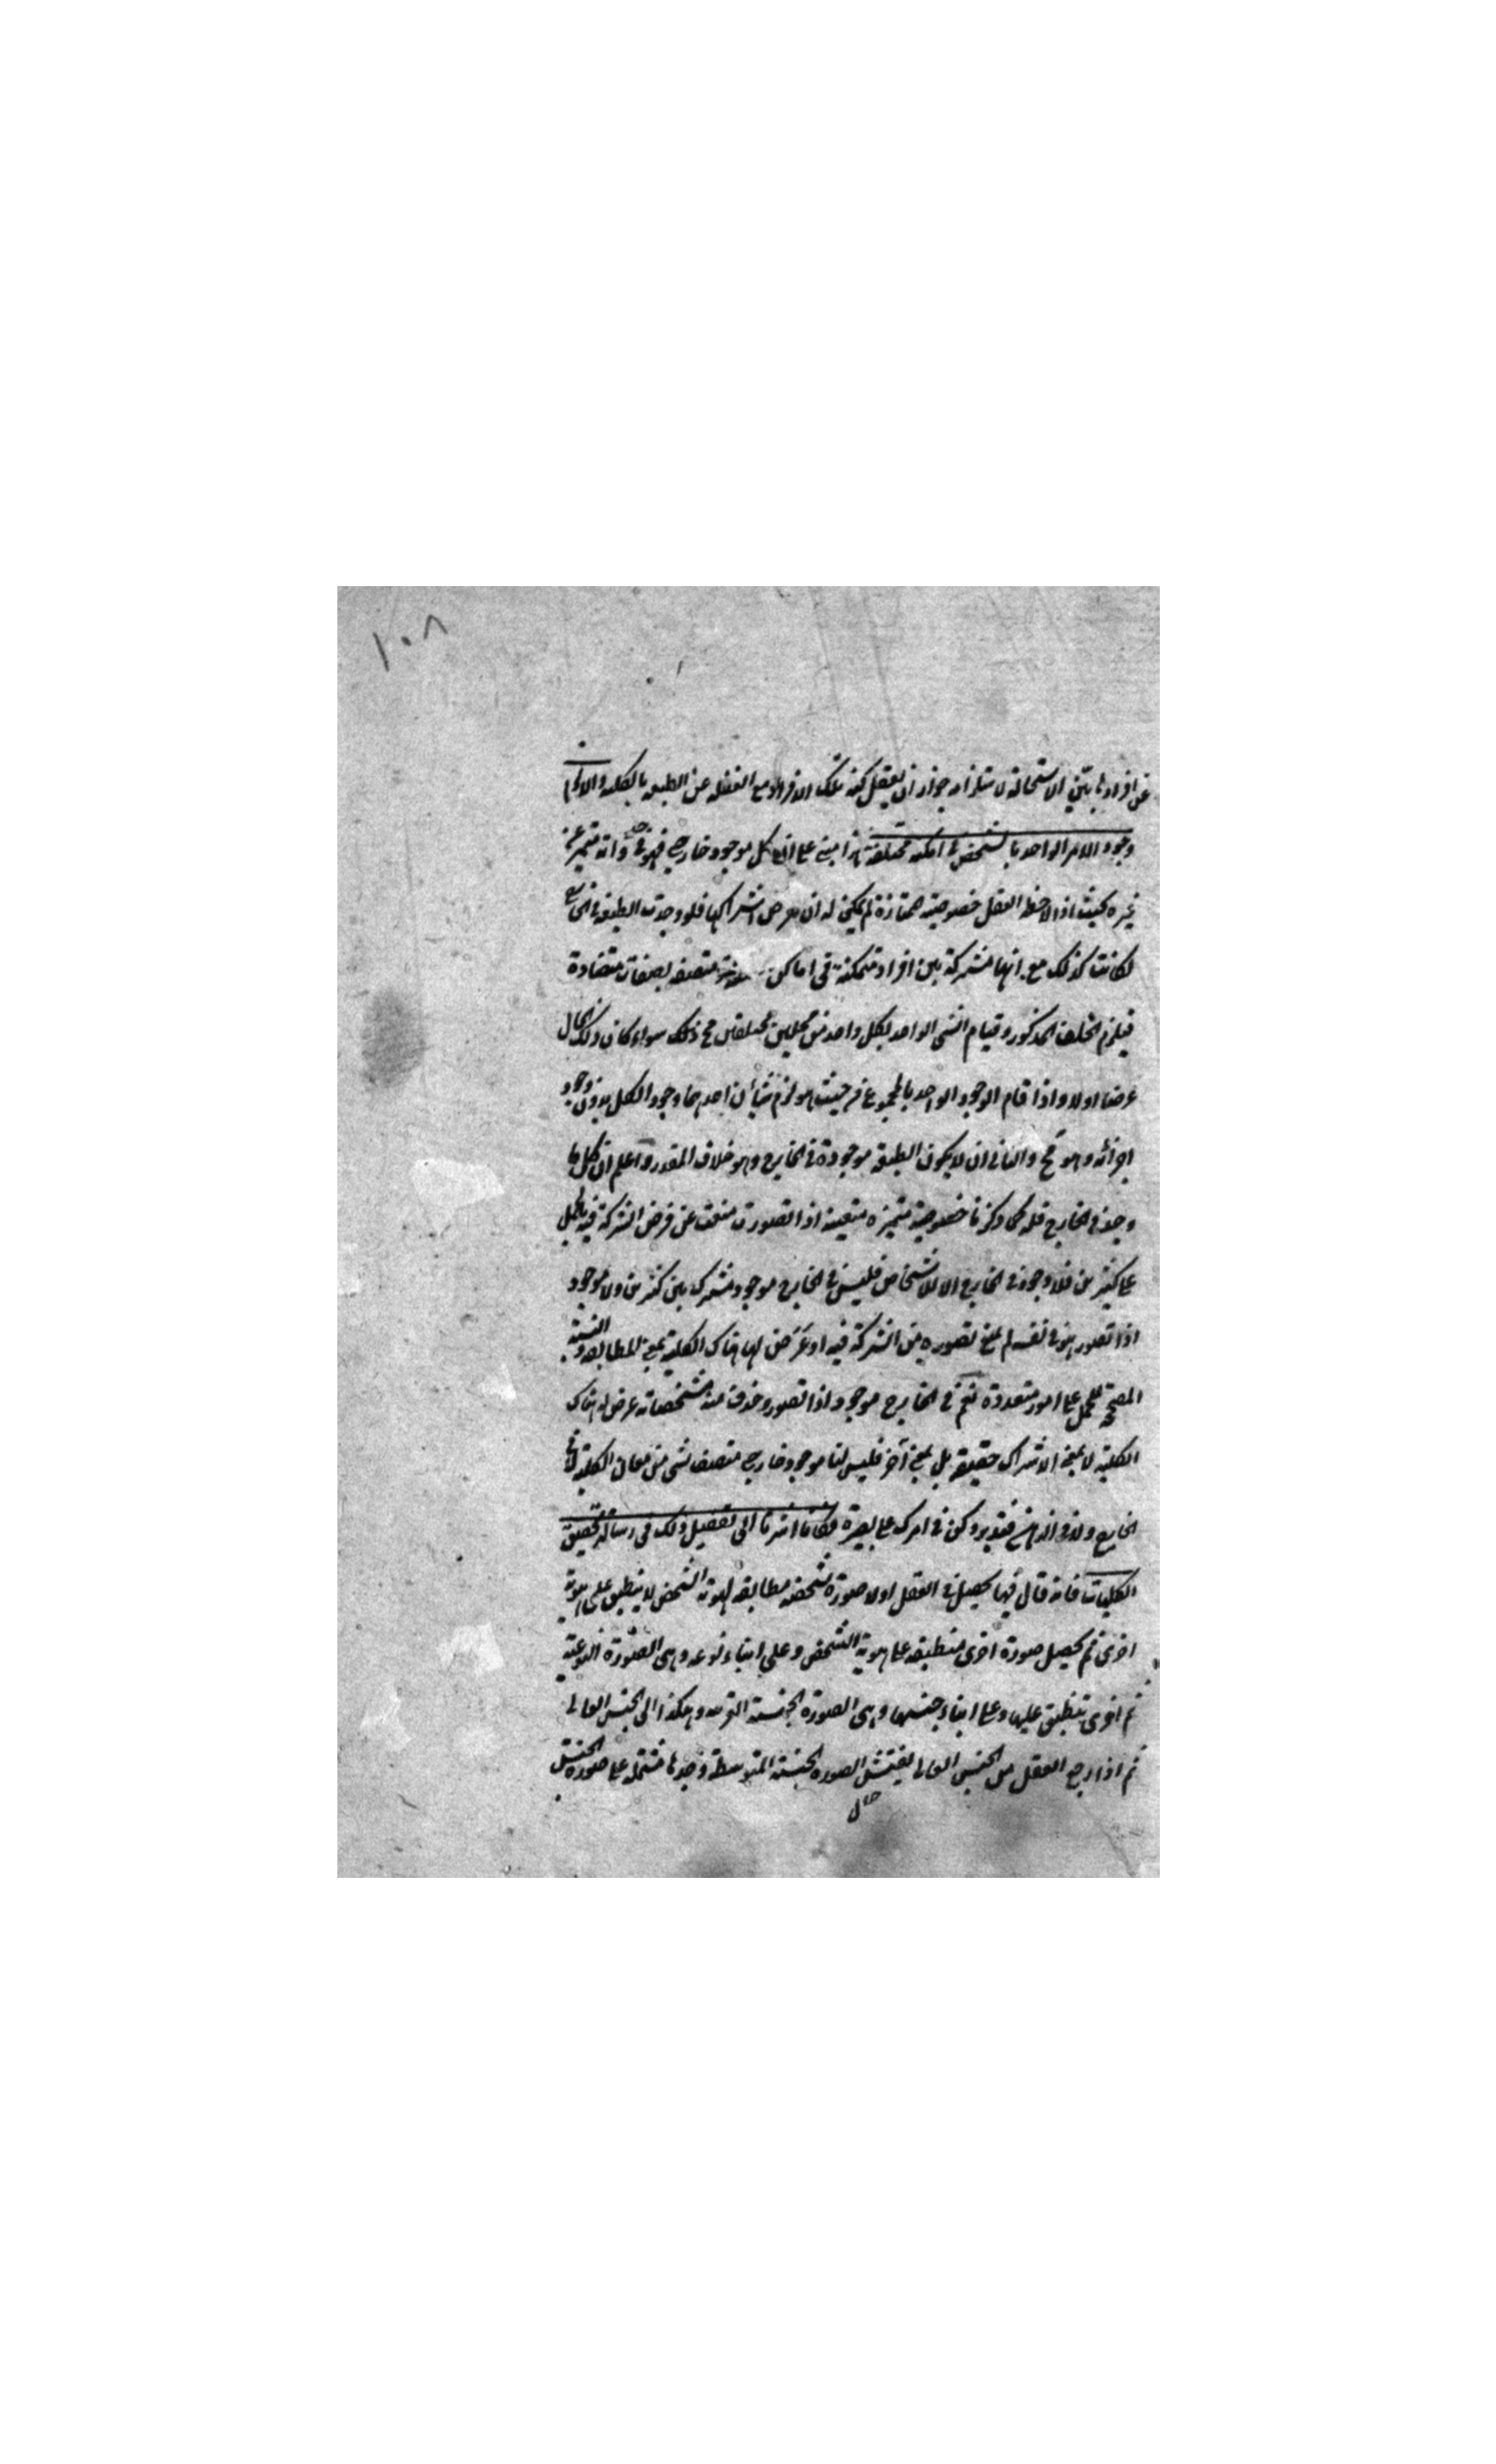 ١٠٨
عن افرادها بيّن الاستحالة لاستلزامه جواز ان يعقل كنه تلك الافراد مع الغفلة عن الطبيعه بالكليه والا لزم
وجود الامر الواحد بالشخص في امكنة مختلفة هذا مبني على ان كل موجود خارجي فهو في حد ذاته متميز عن
غيره بحيث اذا لاحظ العقل خصوصيته ممتازة لم يمكن له ان يعرض اشتراكها فلو وجدت الطبيعه في الخارج
لكانت كذلك مع انها مشتركة بين افراد متمكنة في اماكن متصفه بصفات متضادة
فيلزم الخلف المذكور وقيام الشئ الواحد بكل واحد من محلين مختلفين مح ذلك سواء كان ذلك الحال
عرضا اولا واذا قام الوجود الواحد بالمجموع من حيث هو لزم شيأن احدهما وجود الكل بدون وجود
اجزائه وهو مح والثاني ان لا يكون الطبيعه موجودة في الخارج وهو خلاف المقدر واعلم ان كل ما
وجد في الخارج فله كما ذكرنا خصوصية متميزه متعينة اذا تصورت منعت عن فرض الشركة فيه بالحمل
على كثيرين فلا وجود في الخارج الا للاشخاص فليس في الخارج موجود مشترك بين كثيرين ولا موجود
اذا تصور هو في نفسه لم يمنع تصوره من الشركة فيه او عَرَض لها هناك الكلية بمعنى المطابقه والنسبة
المصححة للحمل على امور متعددة نعم في الخارج موجود اذا تصور وحذف منه مشخصاته عرض له هناك
الكلية لا بمعنى الاشتراك حقيقة بل بمعنى آخر فليس لنا موجود خارجي متصف بشئ من معاني الكلية لا في
الخارج ولا في الذهن فتدبر وكن في امرك على بصيرة فكانا اشرنا الى تفصيل ذلك في رسالة تحقيق
الكليات فانه قال فيها يحصل في العقل اولا صورة شخصه مطابقه لهوية الشخص لا ينطبق على هوية
اخرى ثم يحصل صورة اخرى منطبقه على هوية الشخص وعلى ابناء نوعه وهي الصورة النوعية
ثم اخرى تنطبق عليها وعلى ابناء جنسها وهي الصورة الجنسية القريبه وهكذا الى الجنس العالي
ثم اذا رجع العقل من الجنس العالي يفتش الصوره الجنسية المتوسطة وجدها مشتملة على صورة الجنس